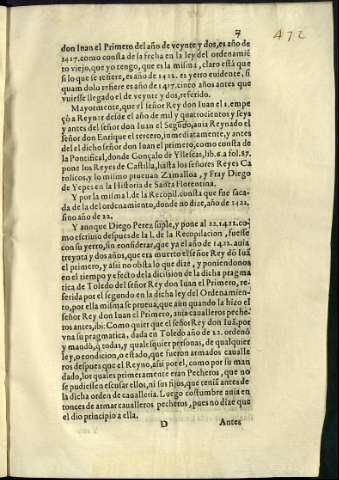 7
472
don Iuan el Primero del año de veynte y dos, es año de
1427. como consta de la fecha en la ley del ordenamiẽ
to viejo, que yo tengo, que es la misma, claro està que
si lo que se refiere, es año de 1422. es yerro euidente, si
quam dolo refiere es año de 1417. cinco años antes que
vuiesse llegado el de veynte y dos, referido.
Mayormente, que el señor Rey don Iuan el 2. empe
çò a Reynar desde el año de mil y quatrocientos y seys
y antes del señor don Iuan el Segũdo, auia Reynado el
señor don Enrique el tercero, inmediatamente, y antes
del el dicho señor don Iuan el primero, como consta de
la Pontifical, donde Gonçalo de Yllescas, lib. 6. a fol. 57.
pone los Reyes de Castilla, hasta los señores Reyes Ca
tolicos, y lo mismo prueuan Zamalloa, y Fray Diego
de Yepes en la Historia de Santa Florentina.
Y por la misma l. de la Recopil. consta que fue saca
da de la del ordenamiento, donde no dize, año de 1422,
sino año de 22.
Y aunque Diego Perez suple, y pone al 22. 1422. co-
mo estuuo despues de la l. de la Recopilacion, fuesse
con su yerro, sin considerar, que ya el año de 1422. auia
treynta y dos años, que era muerto el señor Rey dõ Iuã
el primero, y assi no obsta lo que dize, y poniendonos
en el tiempo y efecto de la decision de la dicha pragma
tica de Toledo del señor Rey don Iuan el Primero, re-
ferida por el segundo en la dicha ley del Ordenamien-
to, por ella misma se prueua, que aun quando la hizo el
señor Rey don Iuan el Primero, auia caualleros peche-
ros antes, ibi: Como quier que el señor Rey don Iuã, por
vna su pragmatica, dada en Toledo año de 22. ordenò
y mandò, q̃ todas, y qualesquier personas, de qualquier
ley, o condicion, o estado, que fueron armados caualle
ros despues que el Reyno, assi por el, como por su man
dado, los quales primeramente eran Pecheros, que no
se pudiessen escusar ellos, ni sus hijos, que teniã antes de
la dicha orden de caualleria. Luego costumbre auia en
tonces de armar caualleros pecheros, pues no dize que
el dio principio a ella.
D
Antes